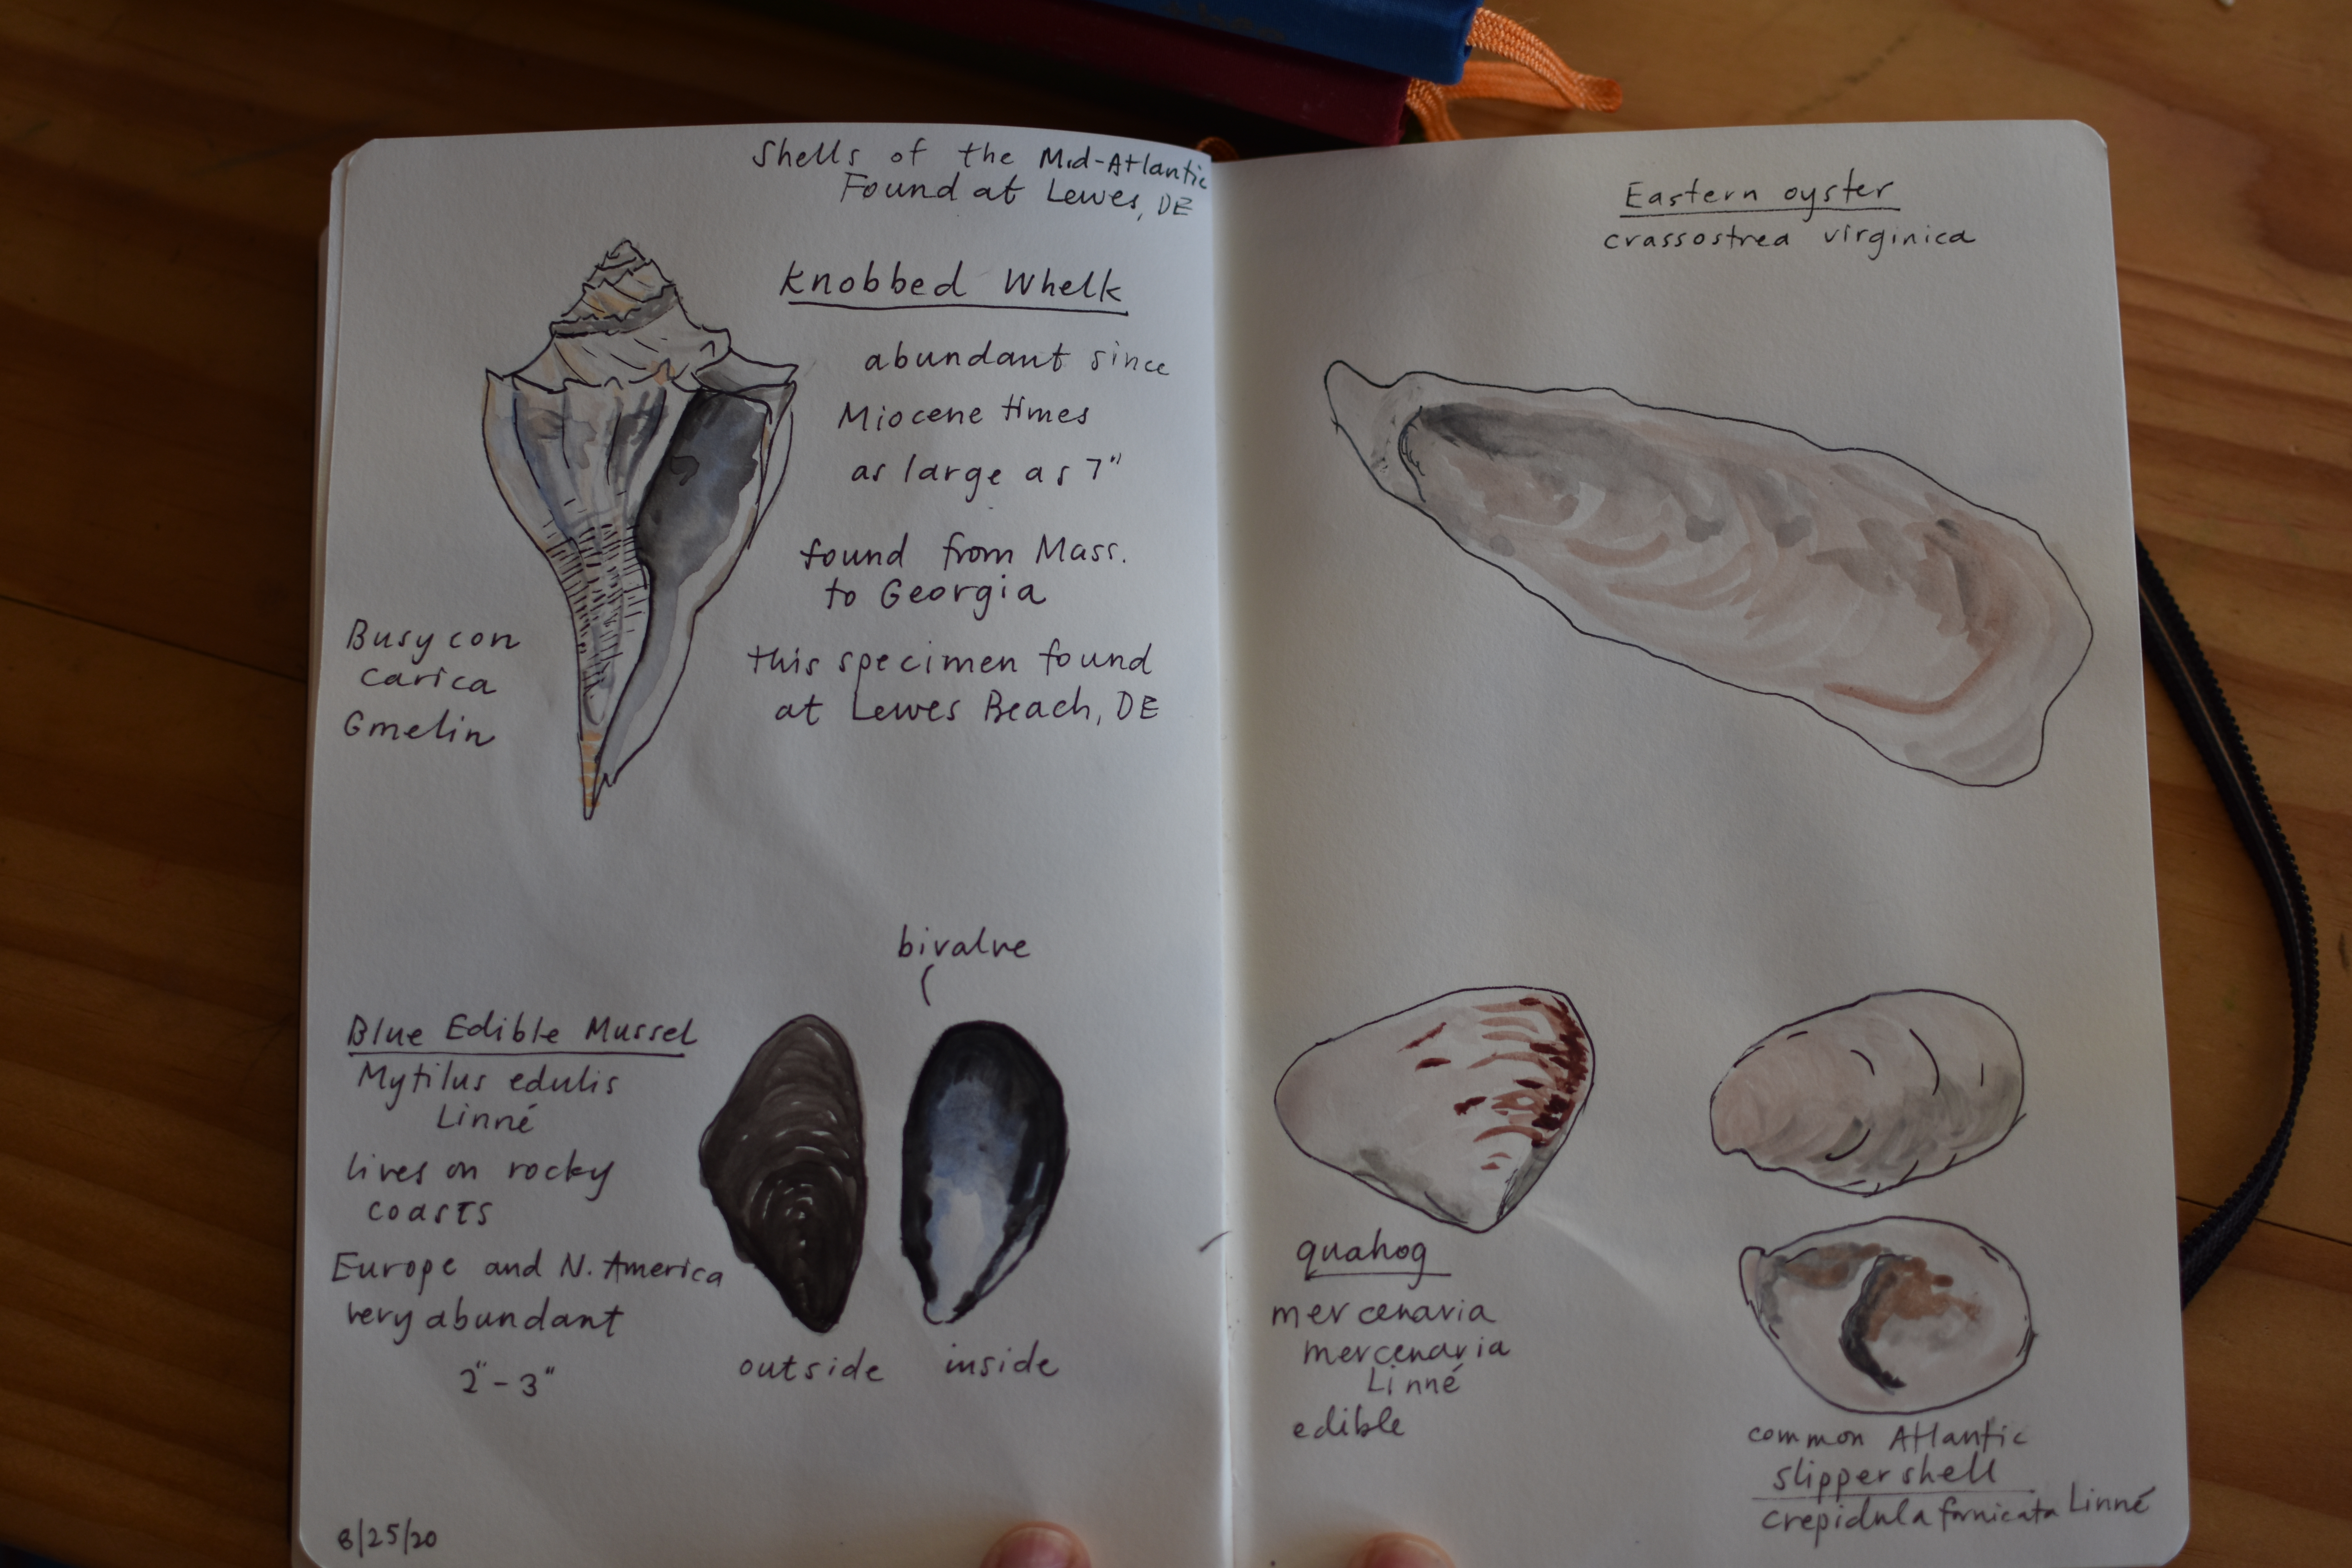 Shells of the Mid-Atlantic
Found at Lewes, DE
Knobbed Whelk
abundant since
Miocene times
as large as 7"
found from Mass.
to Georgia
this specimen found
at Lewes Beach, DE
Busycon
carica
Gmelin
bivalve
Blue Edible Mussel
Mytilus edulis
Linné
lives on rocky
coasts
Europe and N. America
very abundant
2" - 3"
outside
inside
8/25/20
Eastern oyster
crassostrea virginica
quahog
mercenaria
mercenaria
Linné
edible
common Atlantic
slipper shell
crepidula fornicata Linné